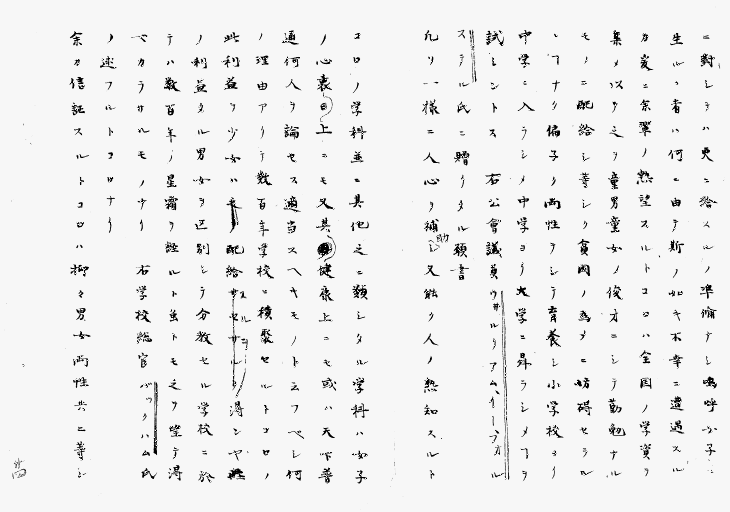 ニ對シテハ更ニ給スルノ準備ナシ嗚呼女子ニ
生ルヽ者ハ何ニ由テ斯ノ如キ不幸ニ遭遇スル
カ爰ニ余輩ノ熱望スルトコロハ全国ノ学資ヲ
集メ以テ之ヲ童男童女ノ俊才ニシテ勤勉ナル
モノニ配給シ等シク貧困ノ為メニ妨碍セラル
ヽコトナク偏子ク両性ヲシテ育養シ小学校ヨリ
中学ニ入ラシメ中学ヨリ大学ニ昇ラシメンヲ
試ミントス 右公會議員ウ井ルリアム、イー、フオル
スタル氏ニ贈リタル願書
凡ソ一様ニ人心ヲ補助シ又能ク人ノ熟知スルト
コロノ学科並ニ其他之ニ類シタル学科ハ女子
ノ心裏上ニモ又其健康上ニモ或ハ天下普
通何人ヲ論セス適当スヘキモノト云フヘシ何
ノ理由アリテ数百年学校ニ積聚セルトコロノ
此利益ヲ少女ハ配給スルコヲ得ンヤ
ノ利益タル男女ヲ区別シテ分教セル学校ニ於
テハ数百年ノ星霜ヲ經ルト虽トモ之ヲ望テ得
ベカラサルモノナリ 右学校総官バックハム氏
ノ述フルトコロナリ
余カ信認スルトコロハ抑々男女両性共ニ等シ